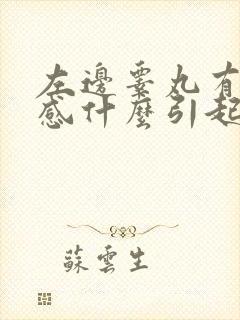 左邊睾丸有
感什麼引起
蘇雲生